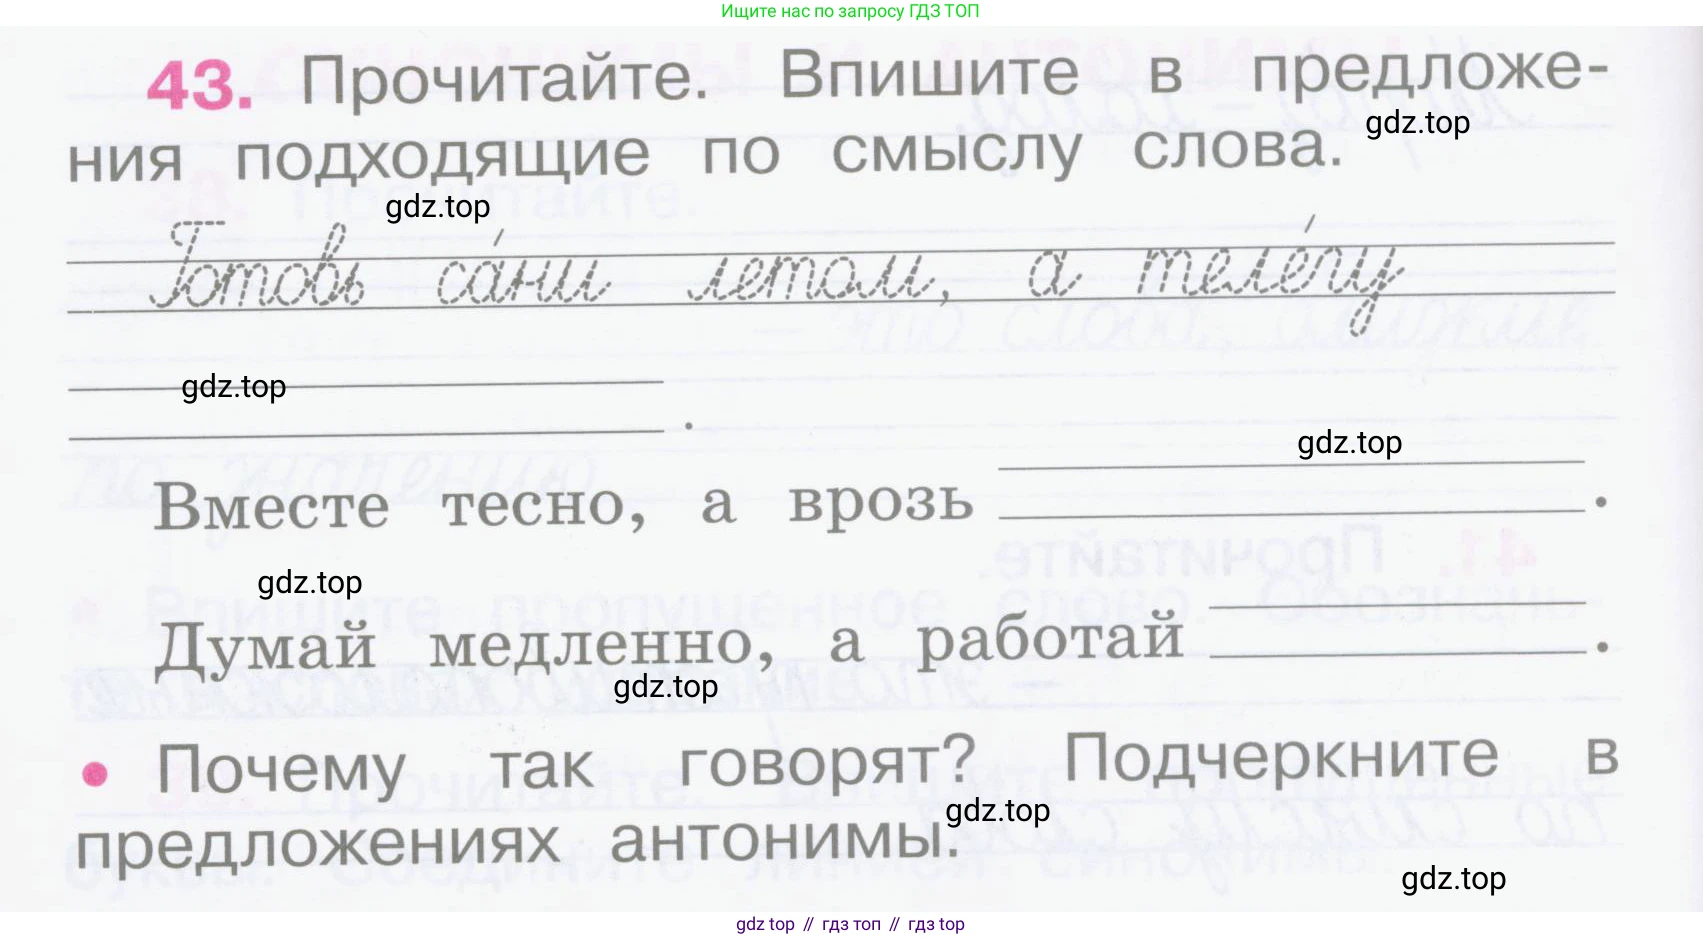 Ищите нас по запросу ГДЗ ТОП
43. Прочитайте. Впишите в предложе-
gdz.top
ния подходящие по смыслу слова.
gdz.top
Готовь са́ни летом, а теле́гу
gdz.top
.
gdz.top
Вместе тесно, а врозь .
gdz.top
Думай медленно, а работай .
gdz.top
• Почему так говорят? Подчеркните в
gdz.top
предложениях антонимы.
gdz.top
gdz top // гдз топ // gdz top